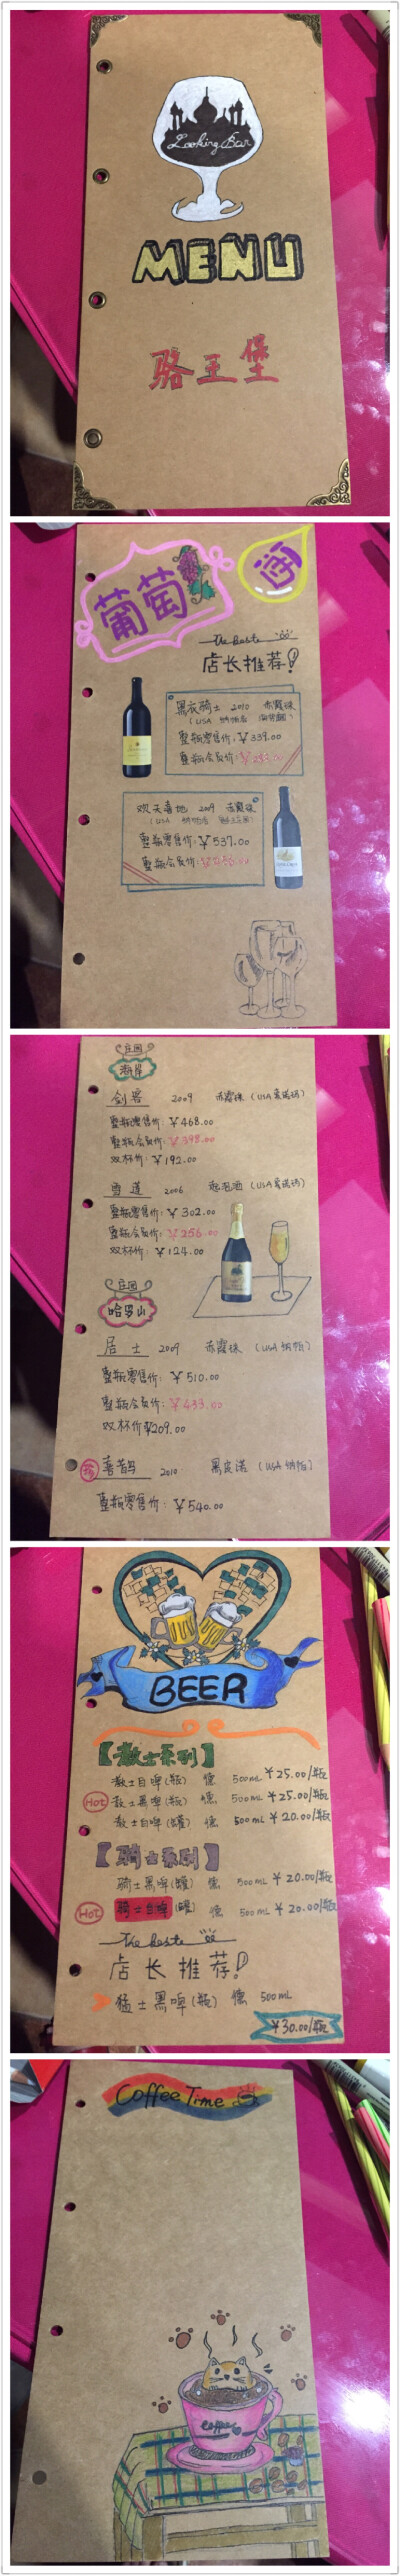 Looking Bar
MENU
骆王堡
葡萄酒
The beste
店长推荐!
黑衣骑士 2010 赤霞珠
整瓶零售价:¥339.00
整瓶会员价:
欢天喜地 2009 赤霞珠
整瓶零售价:¥537.00
整瓶会员价:
庄园
海岸
剑客 2009 赤霞珠 (USA 索诺玛)
整瓶零售价:¥468.00
整瓶会员价:¥398.00
双杯价:¥192.00
雪莲 2006 起泡酒 (USA 索诺玛)
整瓶零售价:¥302.00
整瓶会员价:¥256.00
双杯价:¥124.00
庄园
哈罗山
居士 2009 赤霞珠 (USA 纳帕)
整瓶零售价:¥510.00
整瓶会员价:¥433.00
双杯价¥209.00
喜鹊 2010 黑皮诺 (USA 纳帕)
整瓶零售价:¥540.00
BEER
【教士系列】
教士白啤(瓶) 德 500mL ¥25.00/瓶
Hot 教士黑啤(瓶) 德 500mL ¥25.00/瓶
教士白啤(罐) 德 500mL ¥20.00/瓶
【骑士系列】
骑士黑啤(罐) 德 500mL ¥20.00/瓶
Hot 骑士白啤(罐) 德 500mL ¥20.00/瓶
The beste
店长推荐!
猛士黑啤(瓶) 德 500mL
¥30.00/瓶
Coffee Time
Coffee